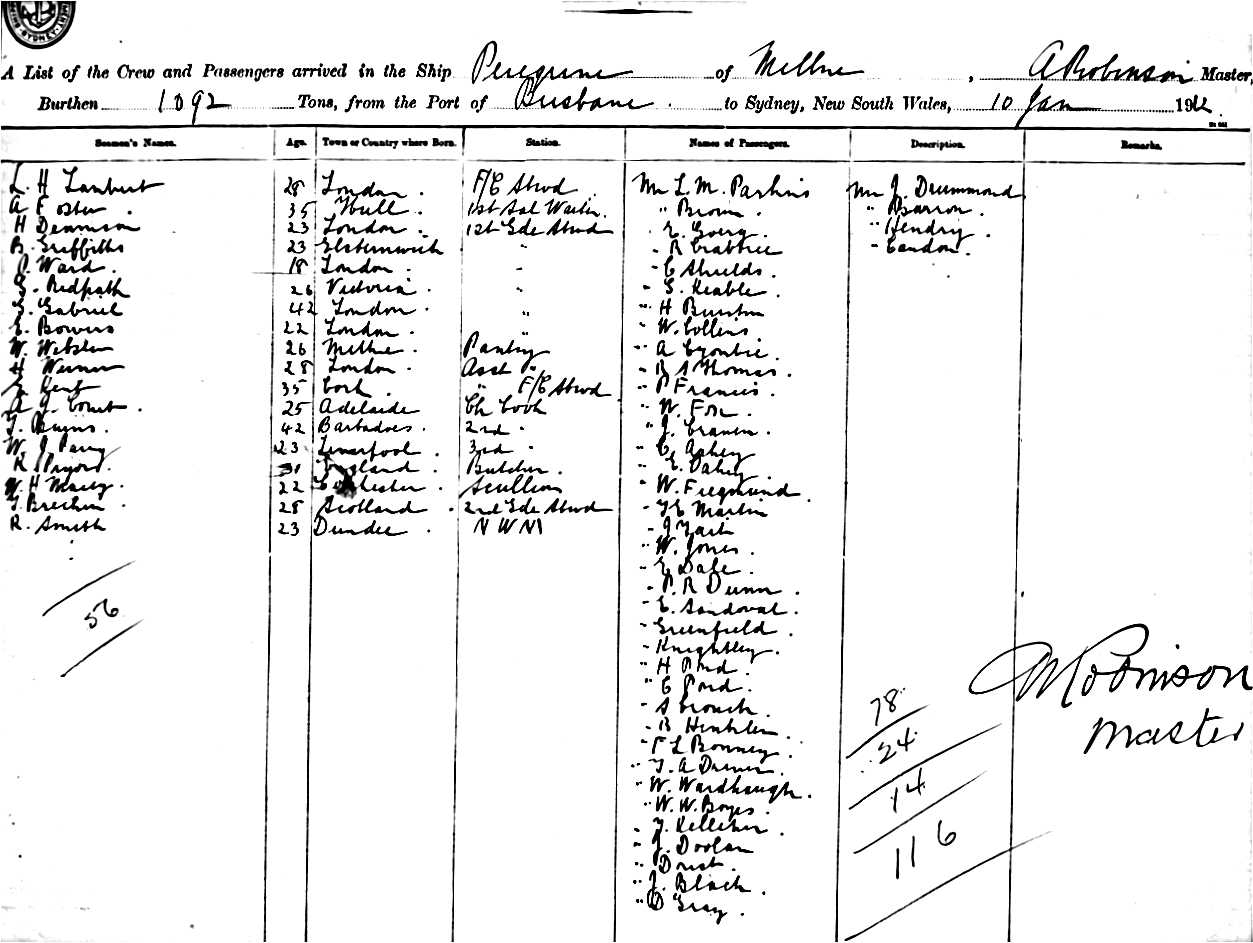 SYDNEY
A List of the Crew and Passengers arrived in the Ship Peregrine of Mellne, A Robinson Master,
Burthen 1092 Tons, from the Port of Brisbane to Sydney, New South Wales, 10 Jan 191
Seamen's Names. Age. Town or Country where Born. Station. Names of Passengers. Description. Remarks.
L. H Lambert 28 London. F/C Stwd Mr L. M. Parkins Mr J. Drummond
A F Foster. 35 Hull. 1st Sal Waiter. " Brown. " Barron.
H Deamson 23 London. 1st Gde Stwd " E. Goerg. " Hendry.
B. Griffiths 23 Elsternwick " " R Crabtree " Candon.
P. Ward. 18 London. " " C Shields.
G. Redpath 26 Victoria. " " S. Keable.
G. Gabriel 42 London. " " H Burston
E. Bowers 22 London. " " W. Collins
W. Webster 26 Mellne. Pantry " A
H Werner 28 London. Asst " " B A Thomas.
Kent 35 Cork. " F/C Stwd " P Francis.
A J. Court. 25 Adelaide Ch Cook " W. Fox.
T. Burns. 42 Barbadoes. 2nd " " J. Craven.
W. J Parry 23 Liverpool. 3rd " " C Ashey
R Pryor. England. Butcher. " E. Oakey
W. H Masey. 22 Scullion " W. Fregmund
T Brechin. 28 Scotland. 2nd Gde Stwd " T E Martin
R. Smith 23 Dundee. N W M " J
" W. Jones.
" E Dale.
" P. R Dunn.
" E. Sandoval.
56 " Greenfield.
" Knightley.
" H Pond.
" C Pond. A Robinson
" A Crouch. 78
" B Hinkler. Master
" F L Bonney. 24
" T. A Davies.
" W. Wardhaugh. 14
" W. W. Boyes.
" T. Kelleher.
" J. Doolan 116
" Drist.
" J. Black.
" D Gray.